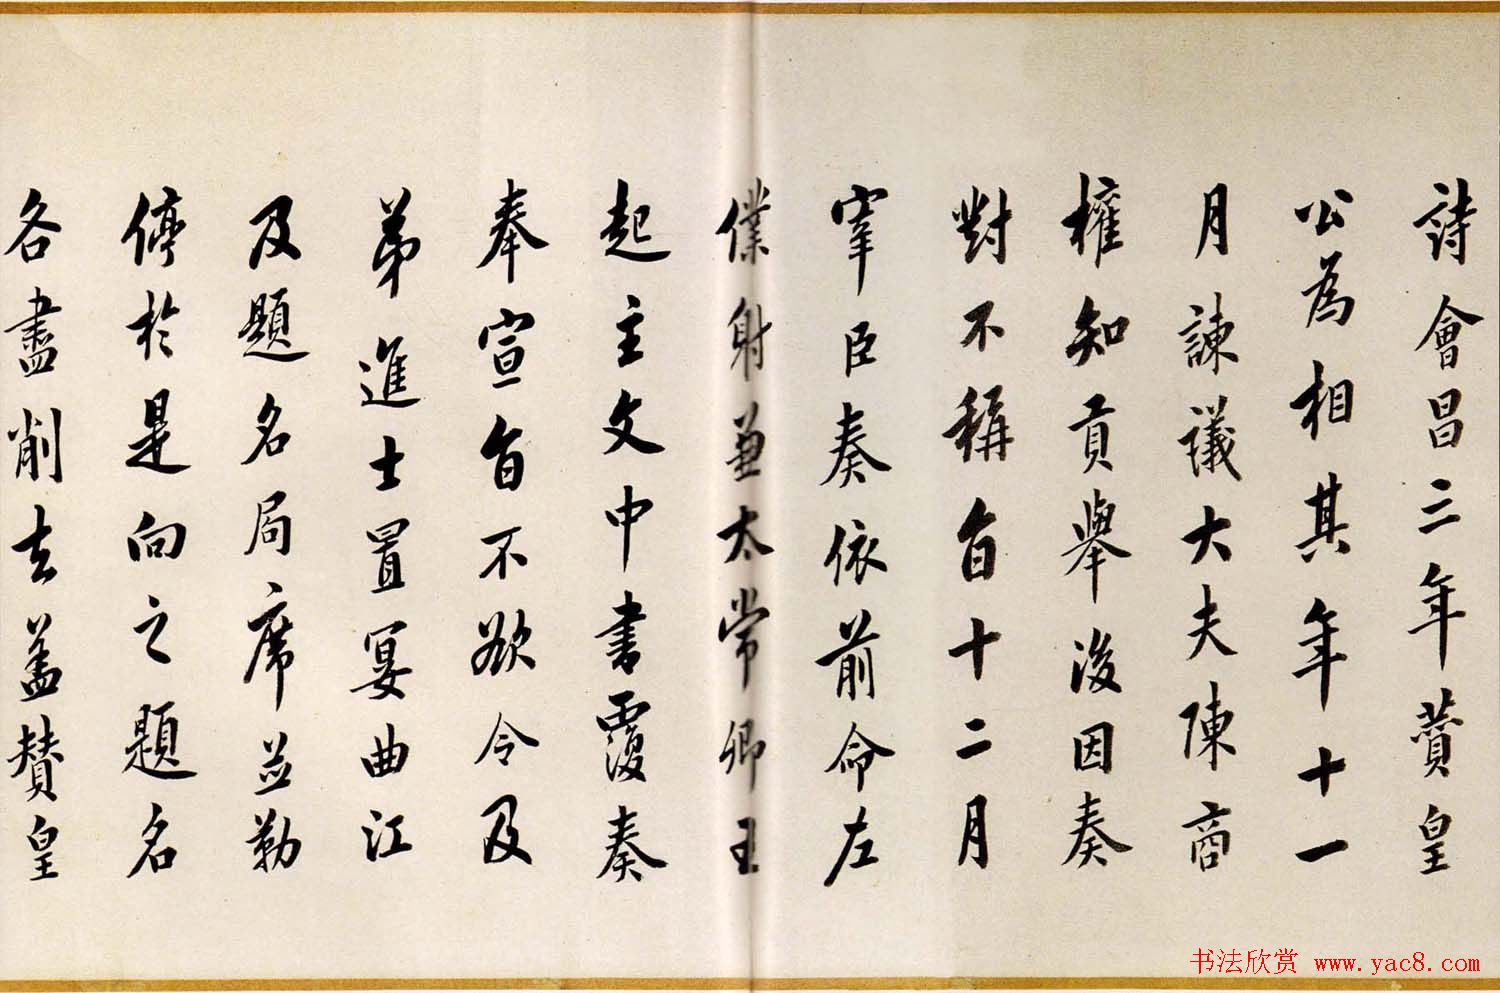 詩會昌三年贊皇
公為相其年十一
月諫議大夫陳商
權知貢舉後因奏
對不稱旨十二月
宰臣奏依前命左
僕射兼太常卿王
起主文中書覆奏
奉宣旨不欲令及
第進士置宴曲江
及題名局席並勒
停於是向之題名
各盡削去盖贊皇
书法欣赏 www.yac8.com